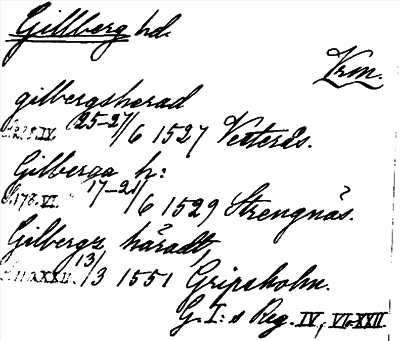 Gillberg hd.
Vrm.
gilbergsherad
S. 228. IV. 25-27/6 1527 Vesterås.
Gilberga h:
S. 178. VI. 17-21/6 1529 Strengnäs.
Gilbergz häradt,
XXII. 13/3 1551 Gripsholm.
G. I: s Reg. IV, VI, XXII.